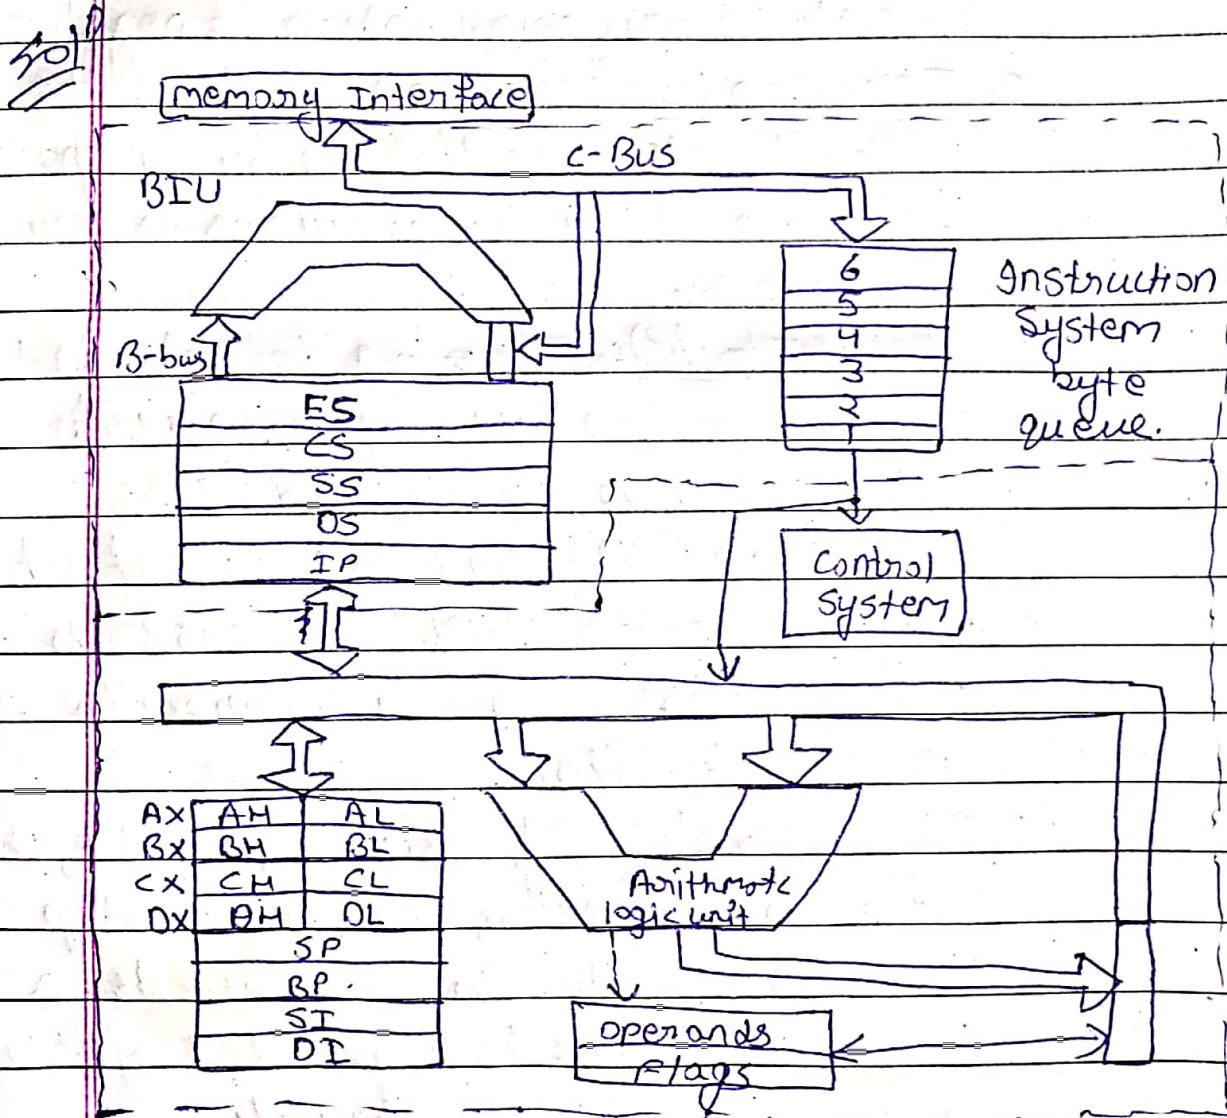 Solⁿ
Memory Interface
C-Bus
BIU
6
5
4
3
2
1
Instruction
System
byte
queue.
B-bus
ES
CS
SS
DS
IP
Control
System
AX AH AL
BX BH BL
CX CH CL
DX DH DL
SP
BP
SI
DI
Arithmetc
logic unit
Operands
Flags